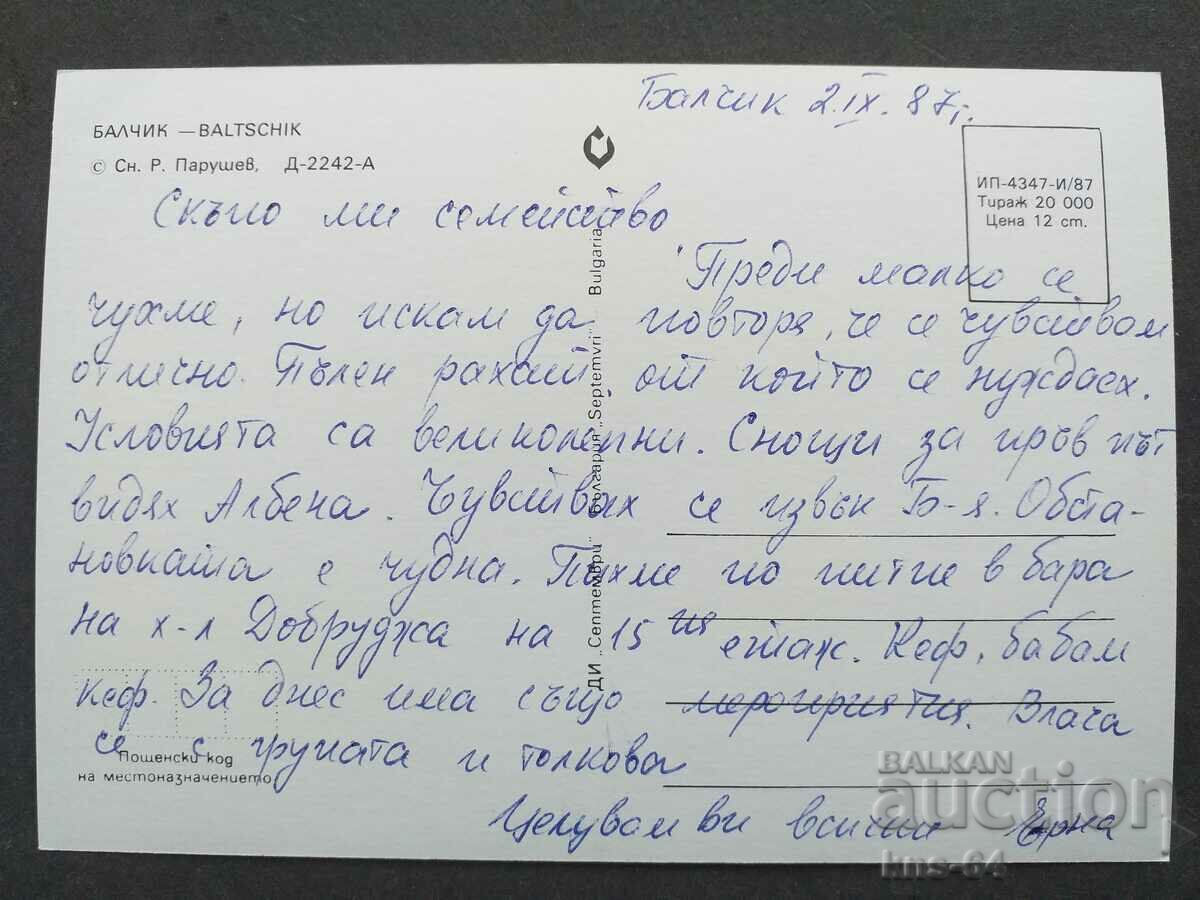 Балчик 2.IX.87г.
БАЛЧИК — BALTSCHIK
© Сн. Р. Парушев, Д-2242-А
ИП-4347-И/87
Тираж 20 000
Цена 12 ст.
Скъпо ми семейство
Преди малко се
чухме, но искам да повторя, че се чувствам
отлично. Пълен рахат, от който се нуждаех.
Условията са великолепни. Снощи за пръв път
видях Албена. Чувствах се извън Б-я. Обста-
новката е чудна. Пихме по питие в бара
на х-л Добруджа на 15ия етаж. Кеф, бабам
кеф. За днес има също мероприятия. Влача
се с групата и толкова
Целувам ви всички Ерна
ДИ „Септември" България „Septemvri" Bulgaria
Пощенски код
на местоназначението
BALKAN
auction
kns-64